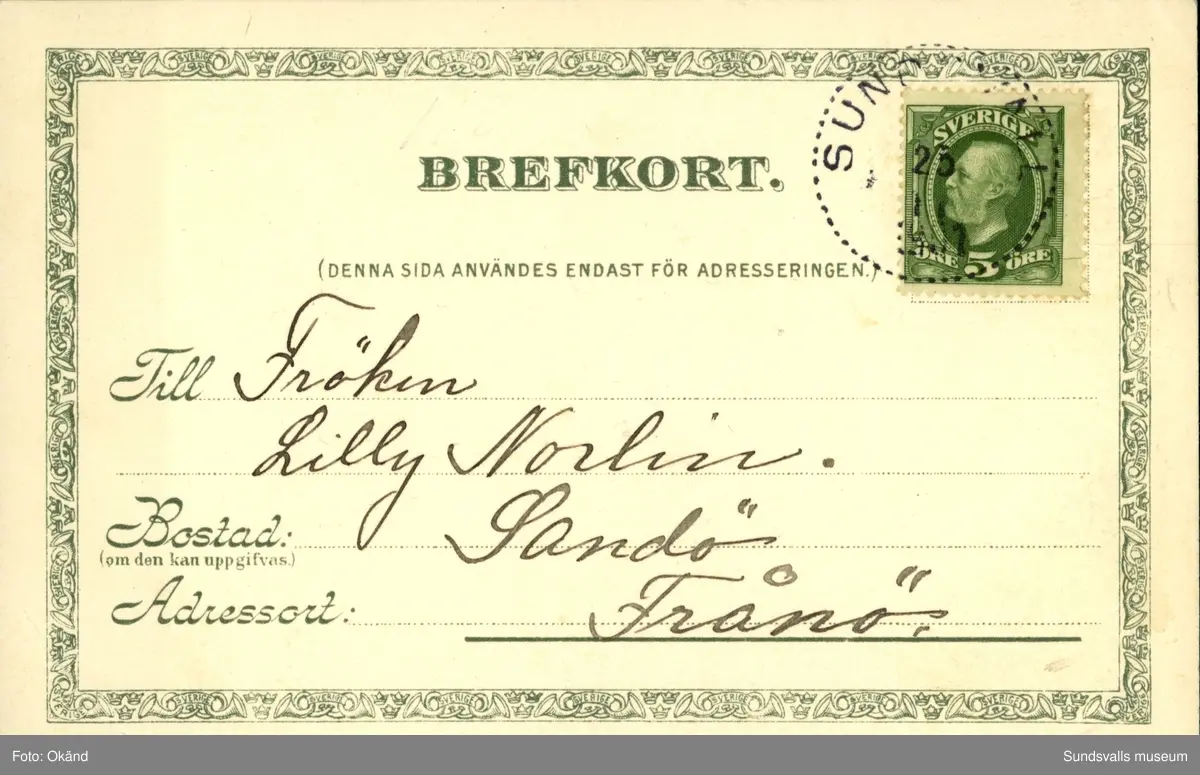 BREFKORT.
(DENNA SIDA ANVÄNDES ENDAST FÖR ADRESSERINGEN.)
SVERIGE
5
ÖRE ÖRE
Till Fröken
Lilly Norlin.
Bostad: Sandö
(om den kan uppgifvas.)
Adressort: Frånö.
Foto: Okänd
Sundsvalls museum